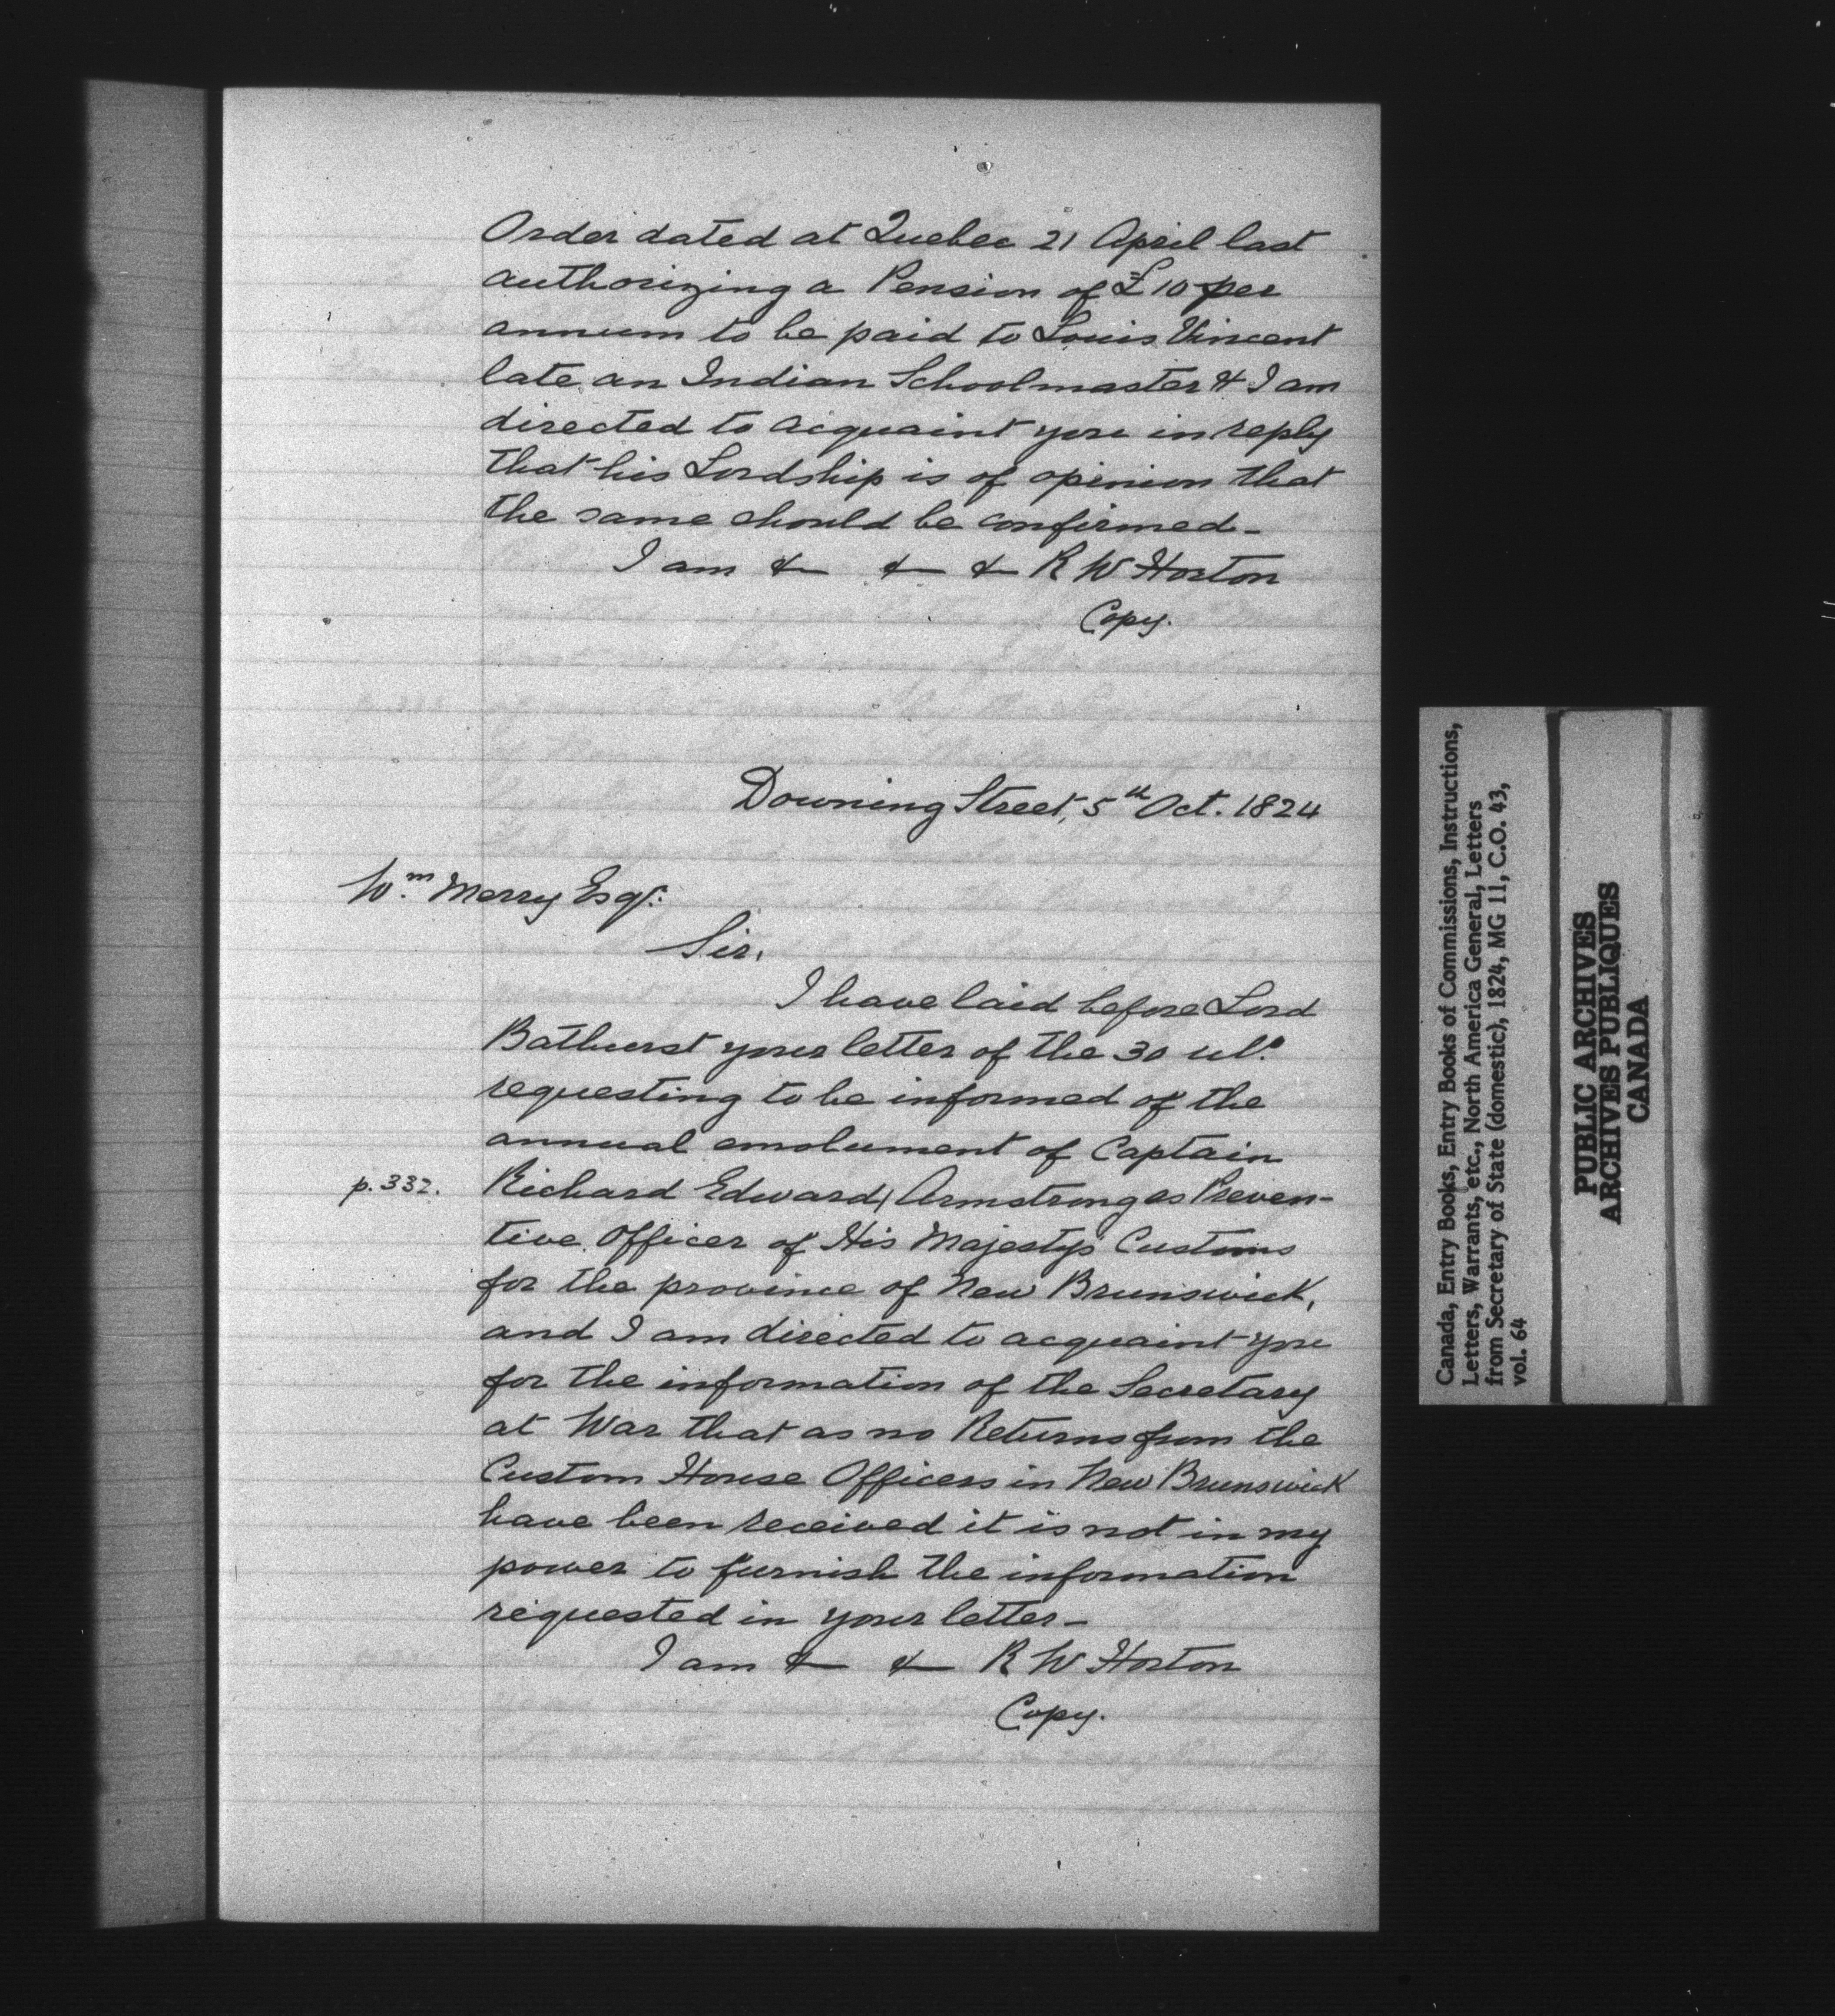 Order dated at Quebec 21 April last
authorizing a Pension of £10 per
annum to be paid to Louis Vincent
late an Indian Schoolmaster & I am
directed to acquaint you in reply
that his Lordship is of opinion that
the same should be confirmed-
I am & & & R W Horton
Copy.
Downing Street, 5th Oct. 1824
Wm Merry Esqr:
Sir,
I have laid before Lord
Bathurst your letter of the 30 ulo
requesting to be informed of the
annual emolument of Captain
p. 332. Richard Edward Armstrong as Preven-
tive Officer of His Majesty's Customs
for the province of New Brunswick,
and I am directed to acquaint you
for the information of the Secretary
at War that as no Returns from the
Custom House Officers in New Brunswick
have been received it is not in my
power to furnish the information
requested in your letter-
I am & & R W Horton
Copy.
Canada, Entry Books, Entry Books of Commissions, Instructions,
Letters, Warrants, etc., North America General, Letters
from Secretary of State (domestic), 1824, MG 11, C.O. 43,
vol. 64
PUBLIC ARCHIVES
ARCHIVES PUBLIQUES
CANADA